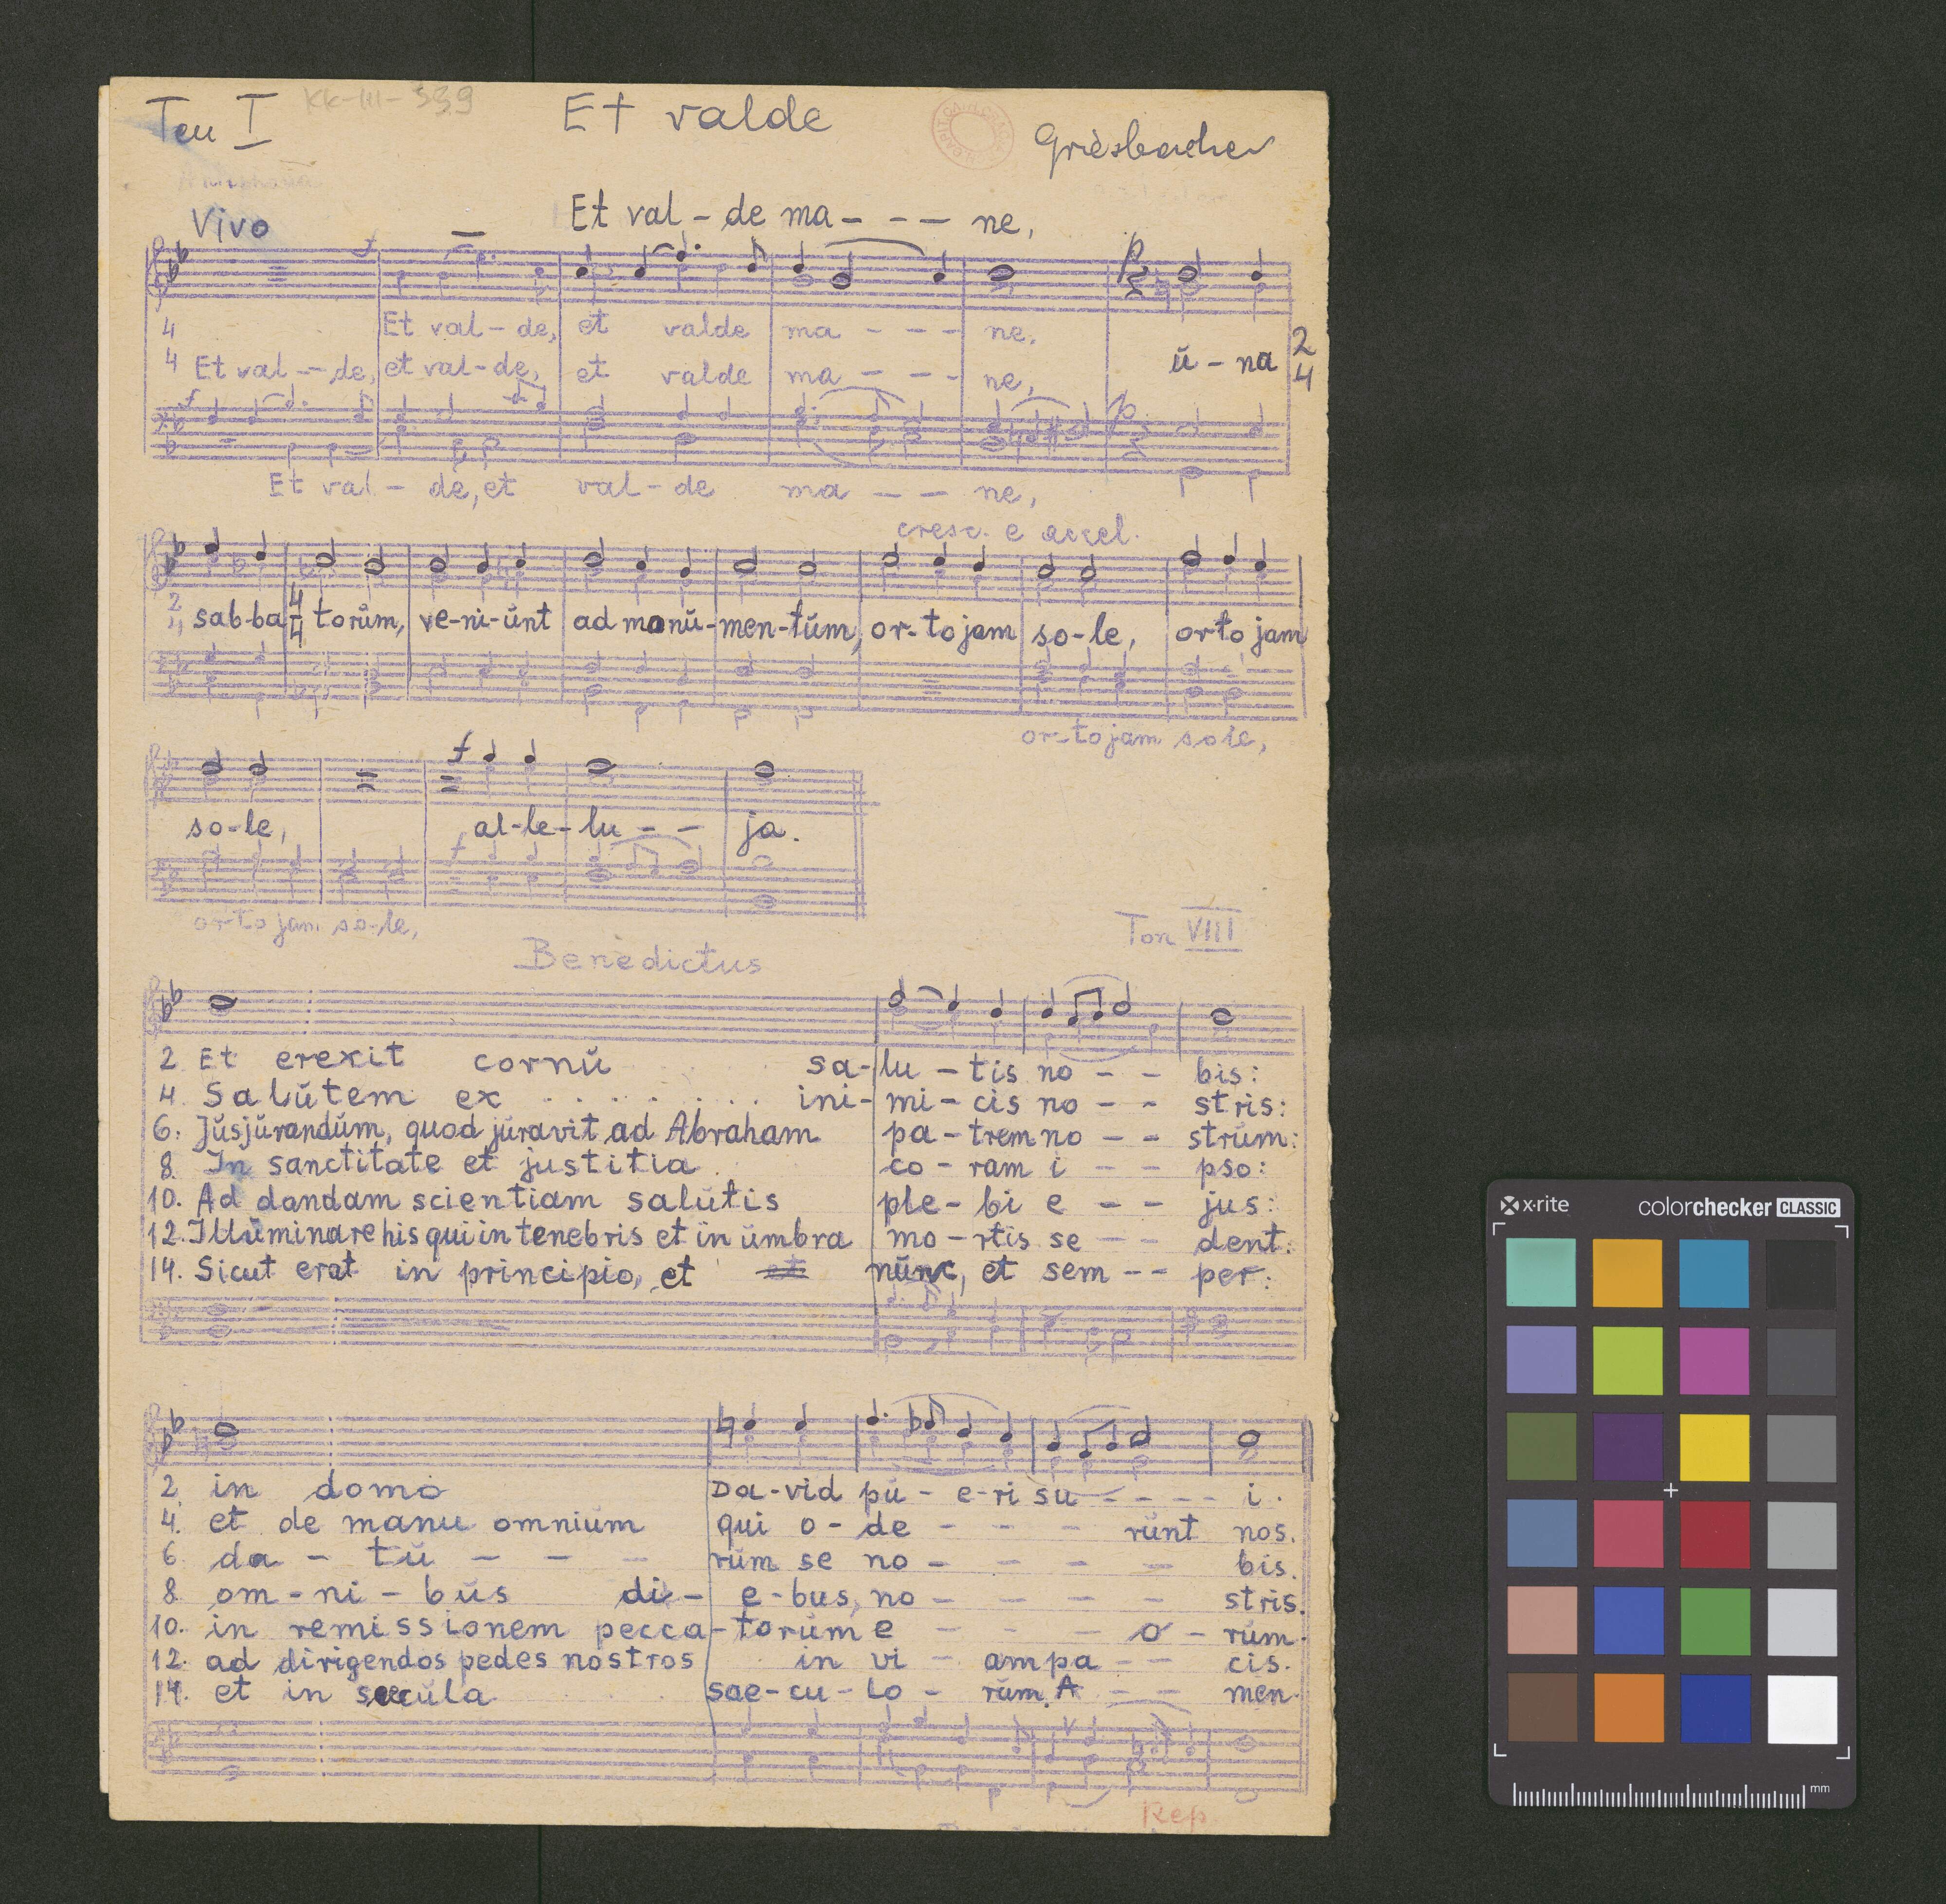 Ten I KK-III-339 Et valde
Griesbacher
Vivo Et val - de ma - - - ne,
f
p
4 Et val - de, et valde ma - - - ne.
4 Et val - - de, et val - de, et valde ma - - - ne, ŭ - na 2
4
f p
Et val - de, et val - de ma - - - ne,
cresc. e accel.
2 sab-ba 4 4 torŭm, ve-ni-ŭnt ad monŭ-men-tŭm, or-to jam so-le, orto jam
or-to jam sole,
f
so-le, al-le-lu - - ja.
f
or-to jam so-le,
Ton VIII
Benedictus
2 Et erexit cornŭ sa-lu - tis no - - bis:
4. Salŭtem ex . . . . . . . ini-mi - cis no - - stris:
6. Jŭsjŭrandŭm, quod jŭravit ad Abraham pa - trem no - - strŭm:
8. In sanctitate et justitia co - ram i - - pso:
10. Ad dandam scientiam salŭtis ple - bi e - - jus:
12. Illŭminare his qui in tenebris et in ŭmbra mo - rtis se - - dent:
14. Sicut erat in principio, et et nŭnc, et sem - - per:
2 in domo Da-vid pŭ - e-ri su - - - - i.
4. et de manu omniŭm qui o - de - - - rŭnt nos.
6. da - tŭ - - - rŭm se no - - - - bis.
8 om - ni - bŭs di - e - bus, no - - - - stris.
10. in remissionem pecca-torŭm e - - - o - rŭm.
12. ad dirigendos pedes nostros in vi - am pa - - cis.
14. et in saecŭla sae-cu-lo - rŭm. A - - men.
Rep.